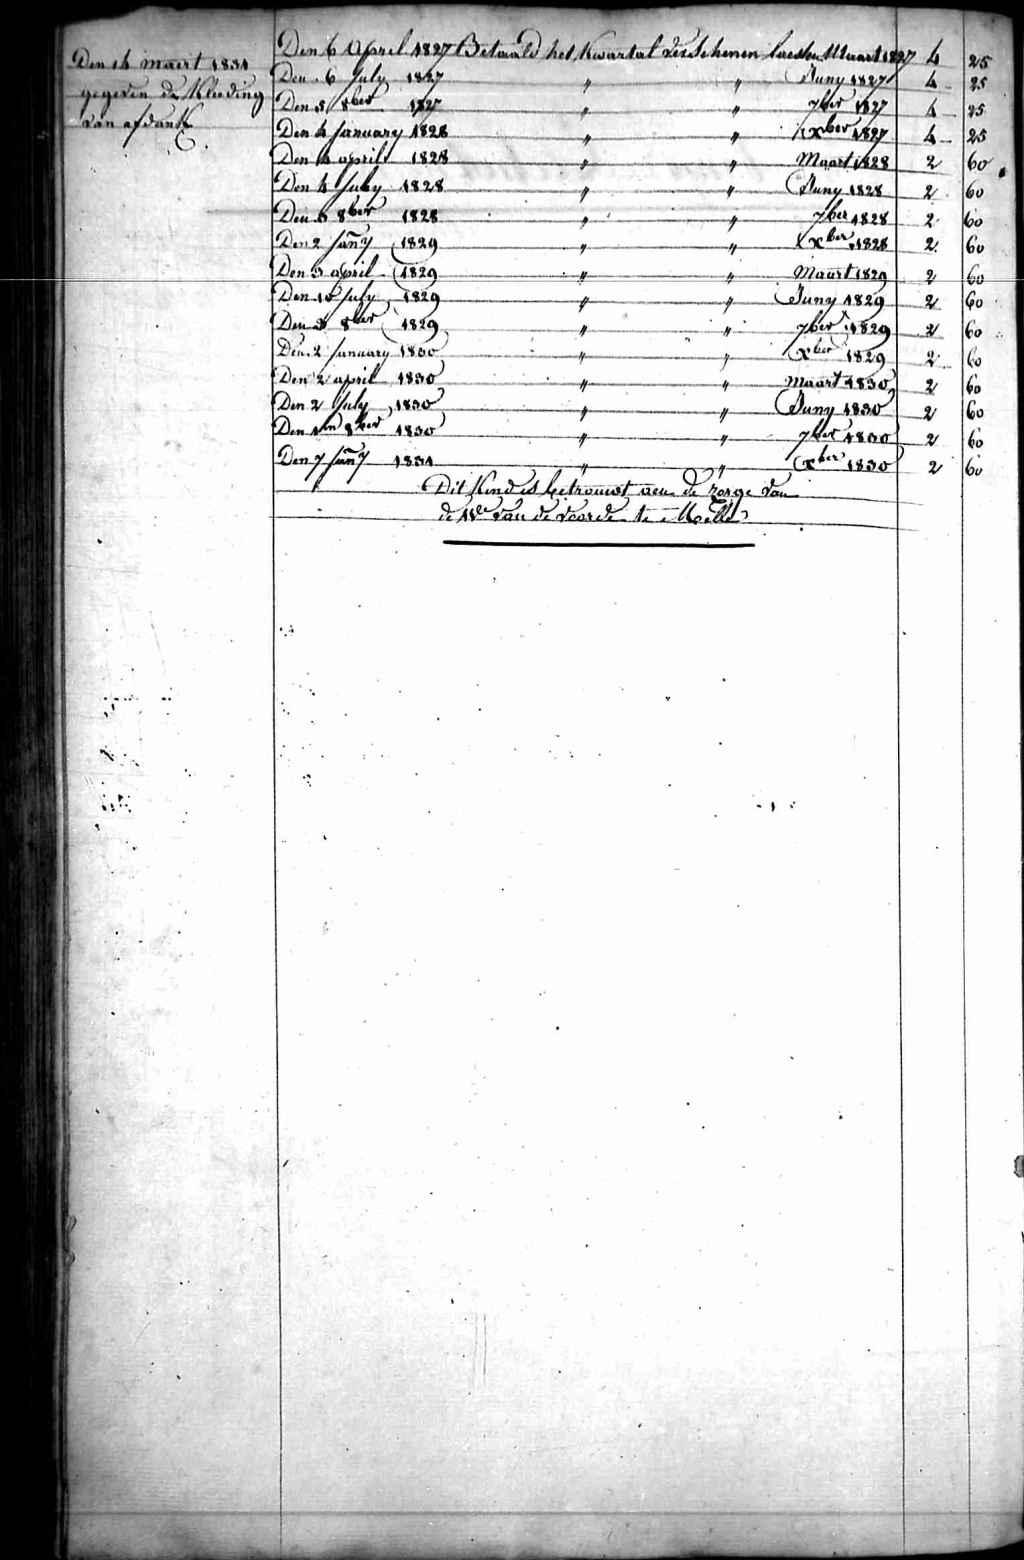 Den 14 maert 1831
gegeven de Kleeding
van afdank
Den 6 April 1827 Betaald het Kwartal verschenen laesten Maart 1827 4 25
Den 6 July 1827 " " Juny 1827 4 25
Den 5 8ber 1827 " " 7ber 1827 4 25
Den 4 January 1828 " " xber 1827 4 25
Den 4 april 1828 " " Maart 1828 2 60
Den 4 July 1828 " " Juny 1828 2 60
Den 6 8ber 1828 " " 7ber 1828 2 60
Den 2 Jany 1829 " " xber 1828 2 60
Den 3 april 1829 " " Maart 1829 2 60
Den 10 July 1829 " " Juny 1829 2 60
Den 8ber 1829 " " 7ber 1829 2 60
Den 2 January 1830 " " xber 1829 2 60
Den 2 april 1830 " " Maart 1830 2 60
Den 2 July 1830 " " Juny 1830 2 60
Den 1en 8ber 1830 " " 7ber 1830 2 60
Den 7 Jany 1831 " " xber 1830 2 60
Dit Kind is betrouwt aen de zorge van
de We van de Voorde te Melle